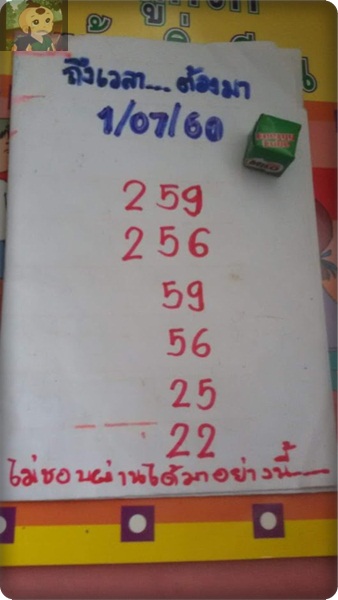 ถึงเวลา... ต้องมา
1/07/60
259
256
59
56
25
22
ไม่ชอบผ่านได้มาอย่างนี้
MILO